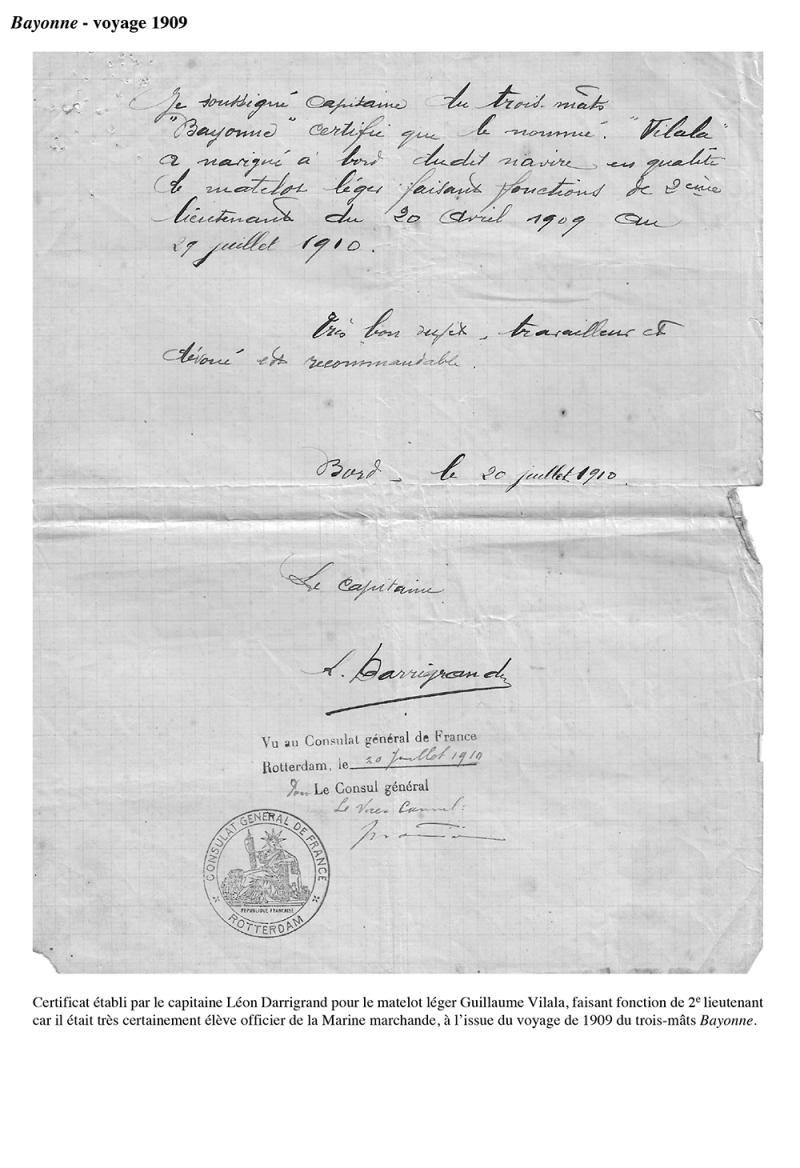 Bayonne - voyage 1909
Je soussigné capitaine du trois-mâts
"Bayonne" certifie que le nommé. "Vilala"
a navigué à bord dudit navire en qualité
de matelot léger faisant fonctions de 2ème
lieutenant du 20 avril 1909 au
29 juillet 1910.
Très bon sujet, travailleur et
dévoué est recommandable.
Bord - le 20 juillet 1910.
Le capitaine
L. Darrigrand
Vu au Consulat général de France
Rotterdam, le 20 Juillet 1910
Le Consul général
Le Vice Consul:
CONSULAT GÉNÉRAL DE FRANCE
RÉPUBLIQUE FRANÇAISE
ROTTERDAM
Certificat établi par le capitaine Léon Darrigrand pour le matelot léger Guillaume Vilala, faisant fonction de 2e lieutenant
car il était très certainement élève officier de la Marine marchande, à l'issue du voyage de 1909 du trois-mâts Bayonne.